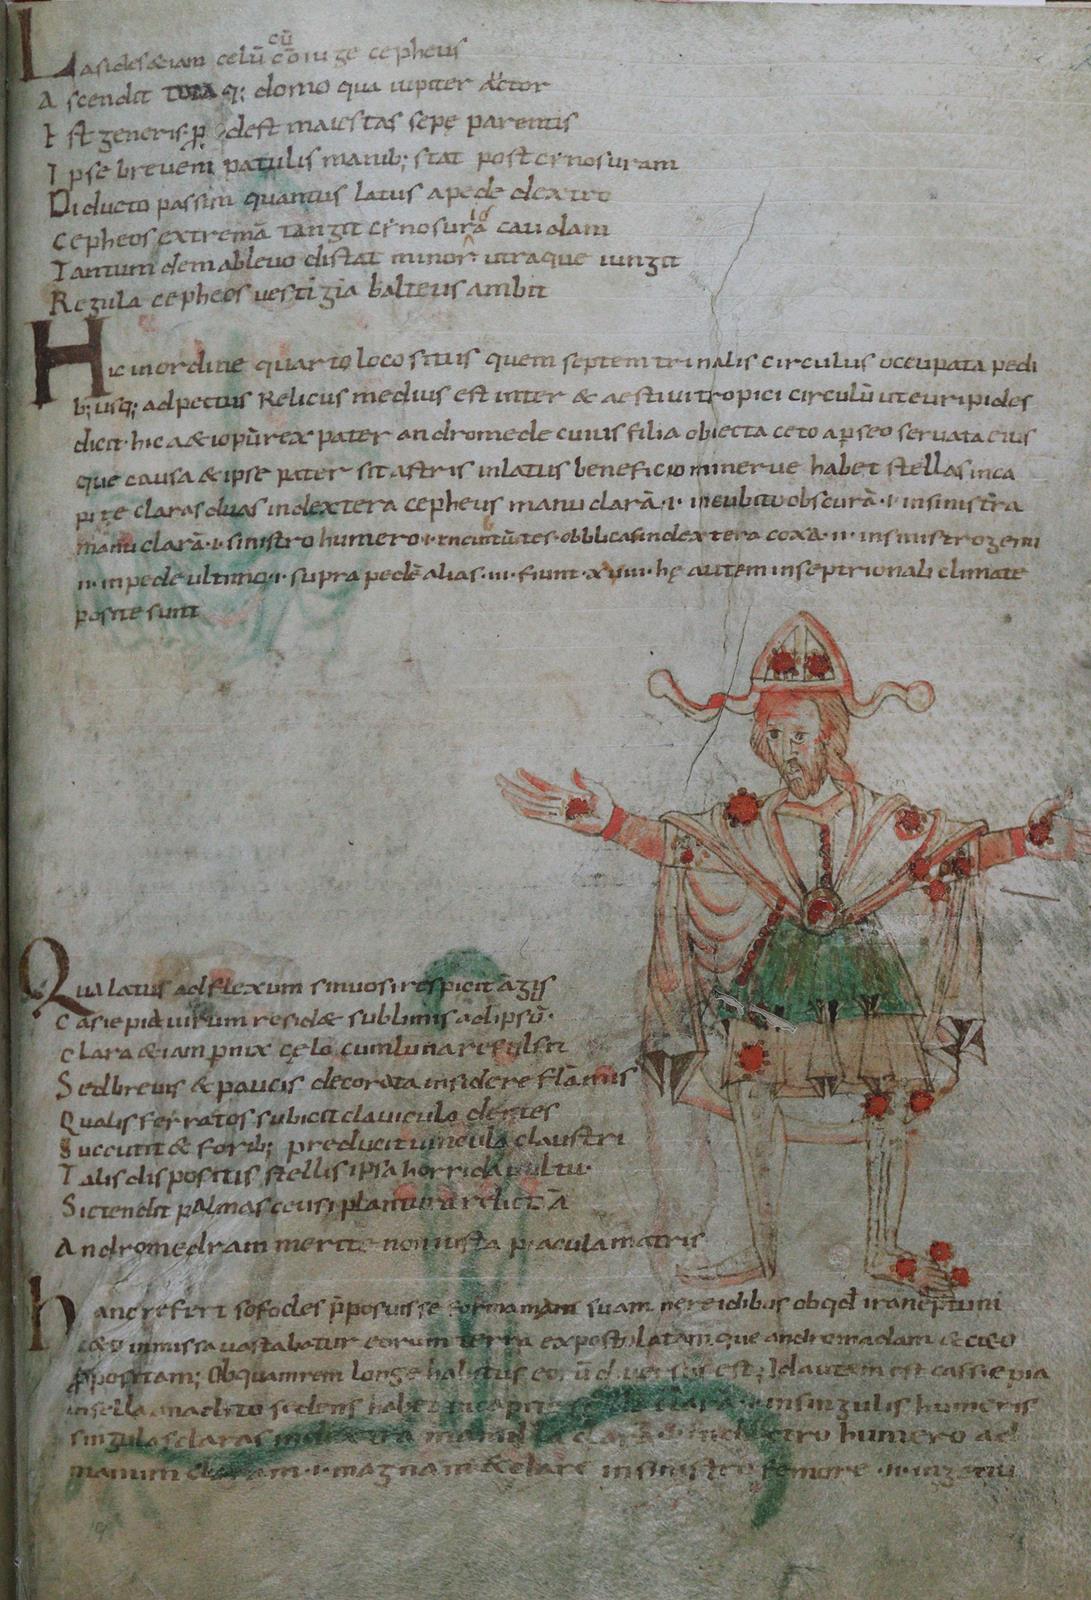 Lasides &iam celū cū cōiuge cepheus
Ascendit totaq; domo qua iupiter auctor
Est generis p dest maiestas sepe parentis
Ipse breuem patulis manib; stat post cynosuram
Diducto passim quantus latus apede dextro
Cepheos extremā tangit cynosurā caudam
Tantumdem ableuo distat minor utraque iungit
Regula cepheos uestigia balteus ambit
Hic inordine quarto loco situs quem septemtrinalis circulus occupat a pedi
b; usq; adpectus Relicus medius est inter & aestiui tropici circulū ut euripides
dicit hic a&iopū rex pater andromede cuius filia obiecta ceto apseo seruata eius
que causa & ipse pater sit astris inlatus beneficio minerue habet stellas inca
pite claras duas indextera cepheus manu clarā · i · incubito obscurā · i · insinistra
manu clarā · i · sinistro humero · i · incintū tes · obblicas indextera coxa · ii · insinistro genu
ii · inpede ultimo · i · supra pedē alias · iii · fiunt · xviii · hę autem inseptrionali climate
posite sunt
Qua latus adflexum sinuosi respicit āgis
Casiepia uirum residæ sublimis adipsū
clara &iam pnix cęlo cumluna refulsit
Sed breuis & paucis decorata insidere flāmis
Qualis ferratos subicit clauicula dentes
Succutit & forib; preducit uincula claustri
Talis dispositis stellis ipsa horrida uultu
Sic tendit palmas ceu sit planctura relictā
Andromedram merite non iusta piacula matris
hanc refert sofocles pposuisse formam suam nereidibus obqd ira neptuni
c&o inmissa uastabatur eorum terra expostulatam que andromadam & c&o
ppositam; Obquamrem longe habitus eorū diuersus est; Id autem est cassiepia
insella anaclito sedens habet incapite clarā · i · insingulis humeris
singulas claras indextra mamilla clarā · i · humero ad
manum claram · i · magnam & clarā insinistro femore · ii · ingenu